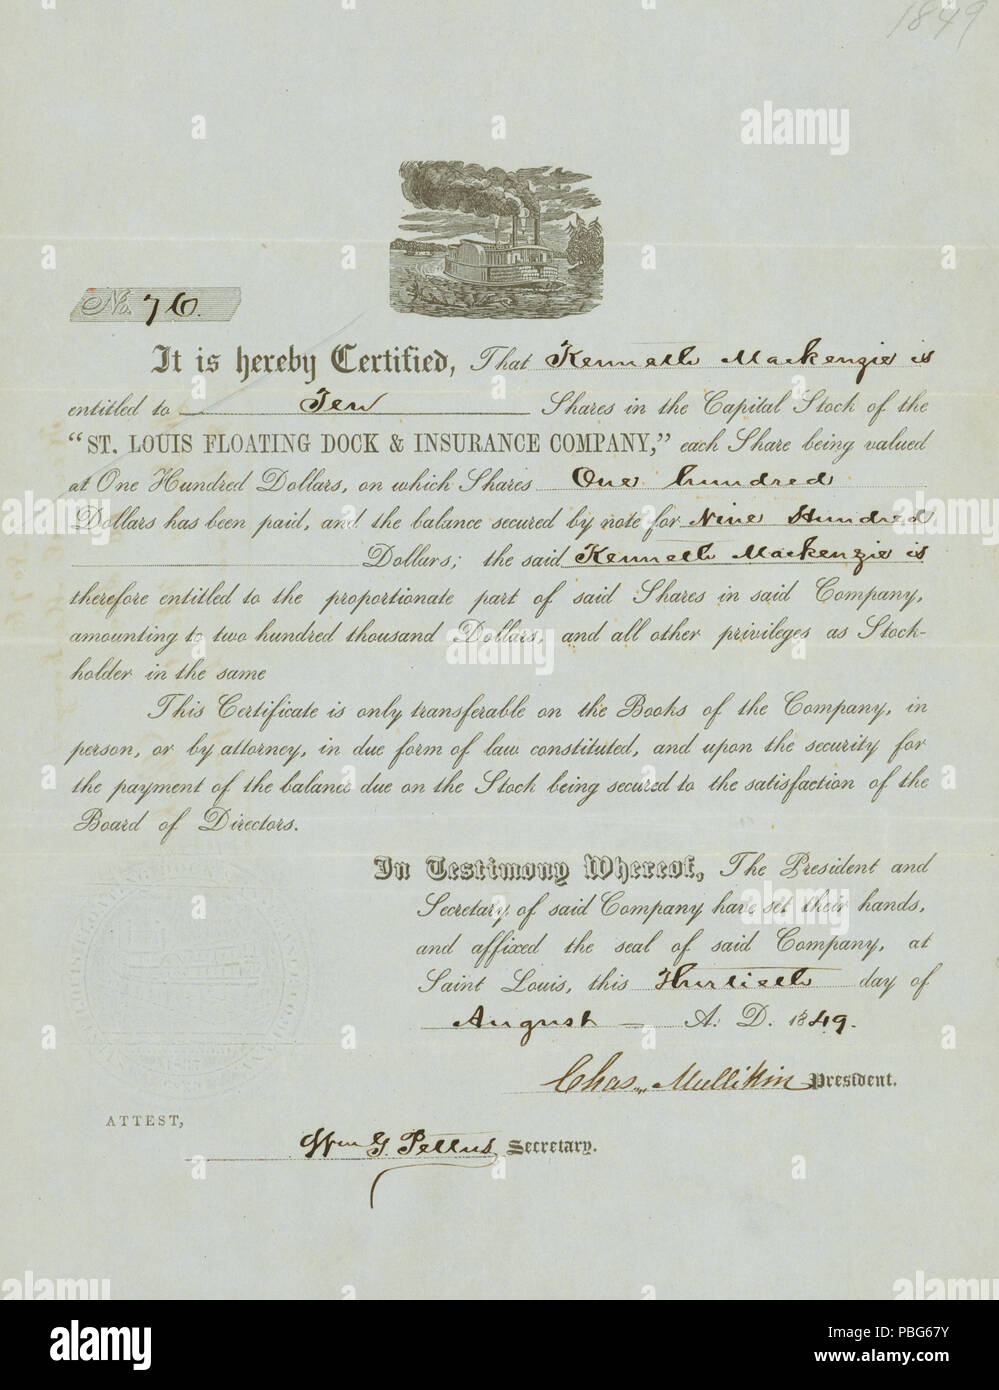 1849
No. 76.
It is hereby Certified, That Kenneth Mackenzie is
entitled to Ten Shares in the Capital Stock of the
"ST. LOUIS FLOATING DOCK & INSURANCE COMPANY," each Share being valued
at One Hundred Dollars, on which Shares One hundred
Dollars has been paid, and the balance secured by note for Nine Hundred
Dollars; the said Kenneth Mackenzie is
therefore entitled to the proportionate part of said Shares in said Company,
amounting to two hundred thousand Dollars, and all other privileges as Stock-
holder in the same
This Certificate is only transferable on the Books of the Company, in
person, or by attorney, in due form of law constituted, and upon the security for
the payment of the balance due on the Stock being secured to the satisfaction of the
Board of Directors.
In Testimony Whereof, The President and
Secretary of said Company have set their hands,
and affixed the seal of said Company, at
Saint Louis, this Thirtieth day of
August A. D. 1849.
Chas. Mullikin President.
ATTEST,
Wm G. Pettus Secretary.
a alamy
alamy
a
a
alamy
a
a
alamy
alamy
Image ID: PBG67Y
www.alamy.com